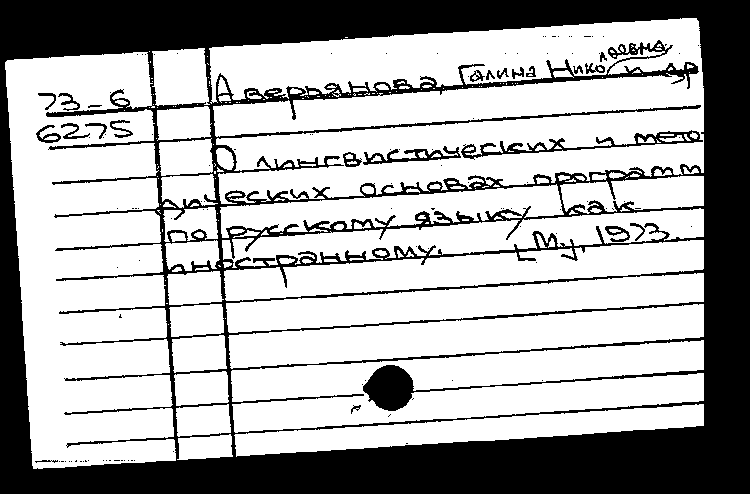 73-6
6275
Аверьянова, Галина Николаевна и др
О лингвистических и мето-
дических основах программ
по русскому языку как
иностранному. [М.], 1973.